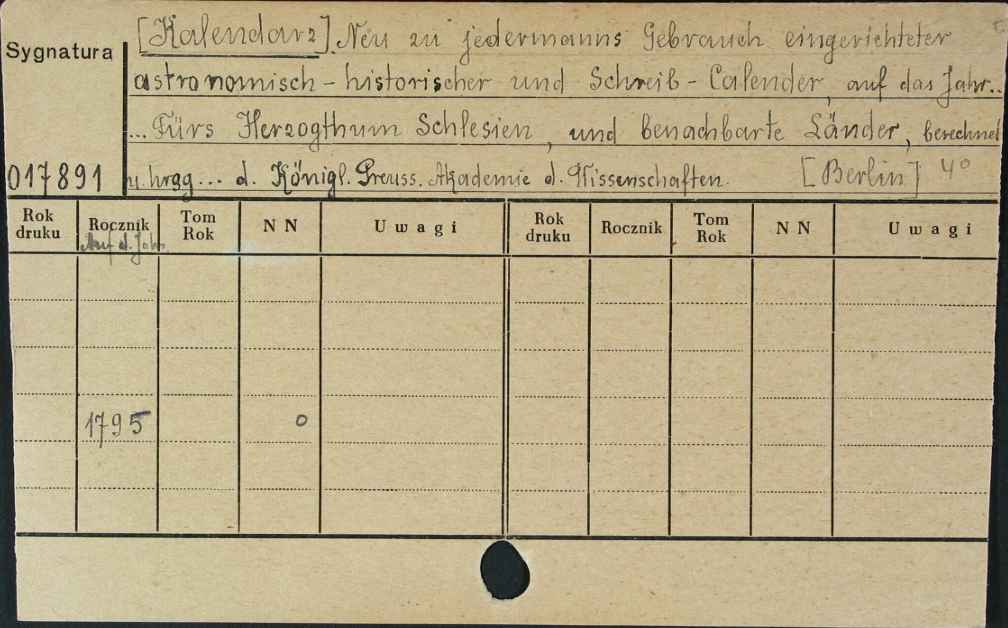 [Kalendarz]. Neu zu jedermanns Gebrauch eingerichteter
Sygnatura
astronomisch-historischer und Schreib-Calender, auf das Jahr...
... Fürs Herzogthum Schlesien, und benachbarte Länder, berechnet
017891 u. hrgg... d. Königl. Preuss. Akademie d. Wissenschaften. [Berlin] 4°
Rok druku Rocznik Tom Rok NN Uwagi Rok druku Rocznik Tom Rok NN Uwagi
Auf d. Jahr
1795 0